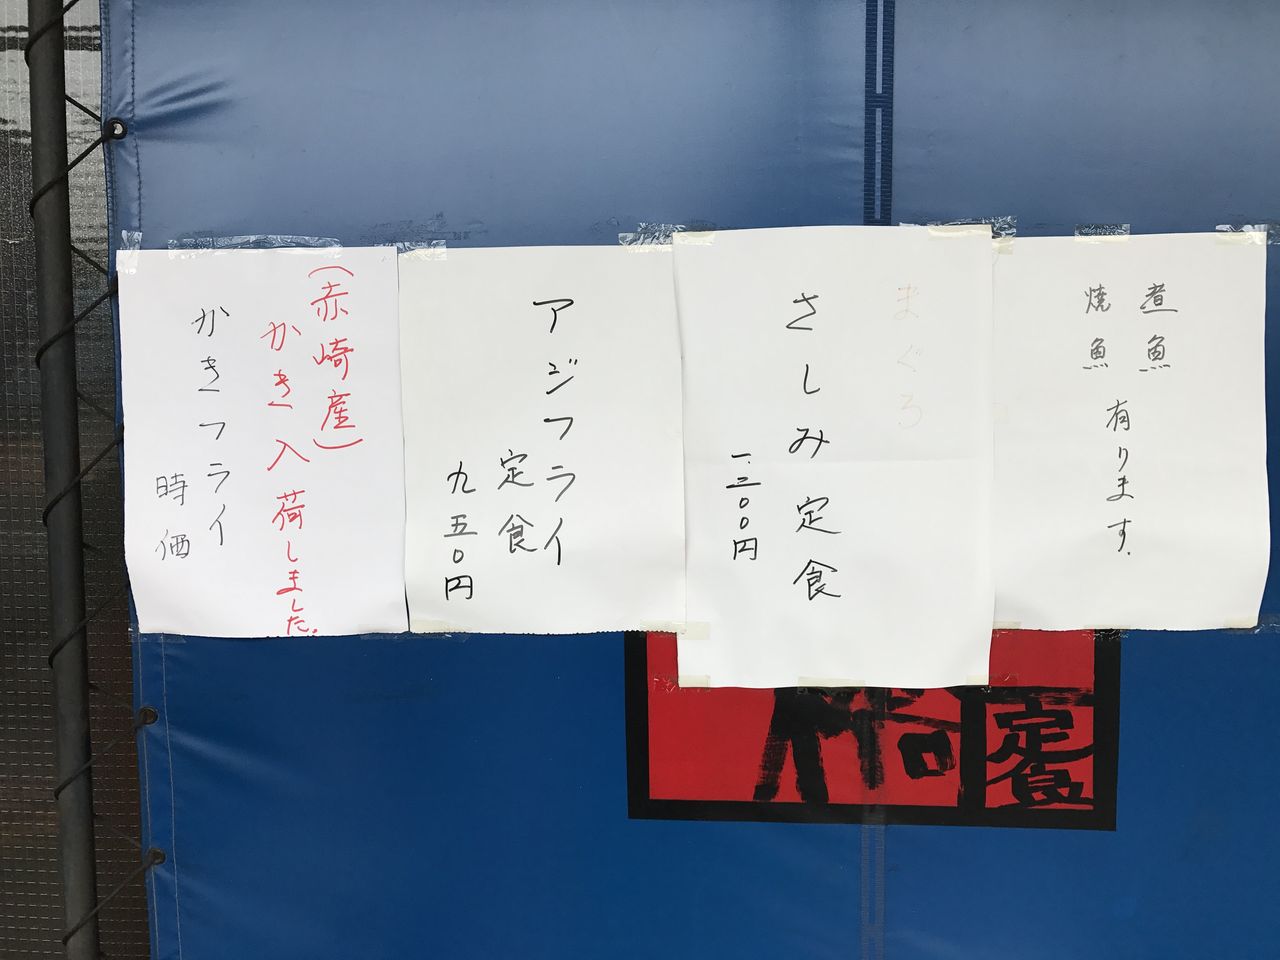 煮魚
焼魚
有ります.
まぐろ
さしみ定食
一.三〇〇円
アジフライ
定食
九五〇円
(赤崎産)
かき入荷しました.
かきフライ
時価
定食